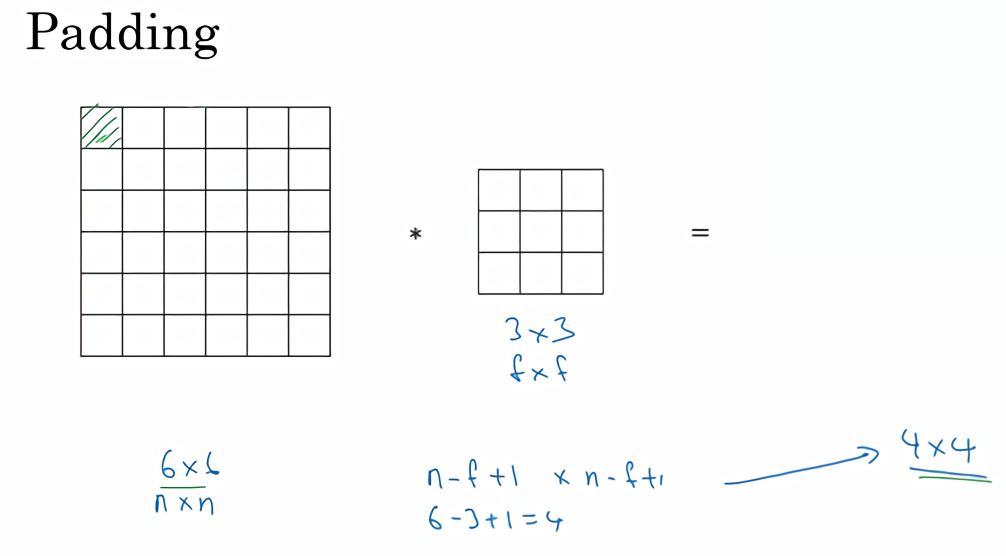 Padding
* =
3 × 3
f × f
4 × 4
6 × 6
n × n
n - f + 1 × n - f + 1
6 - 3 + 1 = 4